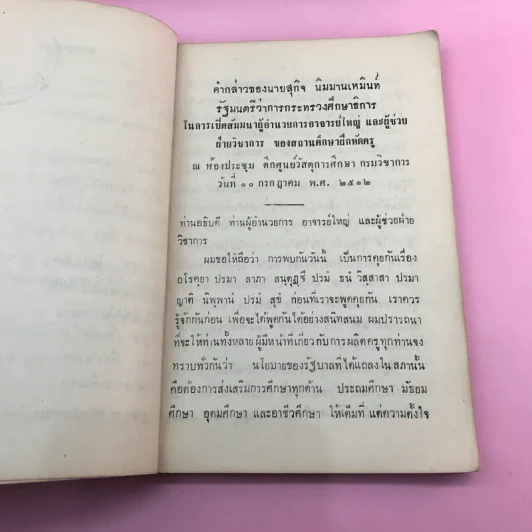 คำกล่าวของนายสุกิจ นิมมานเหมินท์
รัฐมนตรีว่าการกระทรวงศึกษาธิการ
ในการเปิดสัมมนาผู้อำนวยการอาจารย์ใหญ่ และผู้ช่วย
ฝ่ายวิชาการ ของสถานศึกษาฝึกหัดครู
ณ ห้องประชุม ตึกศูนย์วัสดุการศึกษา กรมวิชาการ
วันที่ ๑๐ กรกฎาคม พ.ศ. ๒๕๑๒
ท่านอธิบดี ท่านผู้อำนวยการ อาจารย์ใหญ่ และผู้ช่วยฝ่าย
วิชาการ
ผมขอให้ถือว่า การพบกันวันนี้ เป็นการคุยกันเรื่อง
อโรคยา ปรมา ลาภา สนฺตุฏฺฐี ปรมํ ธนํ วิสฺสาสา ปรมา
ญาติ นิพฺพานํ ปรมํ สุขํ ก่อนที่เราจะพูดคุยกัน เราควร
รู้จักกันก่อน เพื่อจะได้พูดกันได้อย่างสนิทสนม ผมปรารถนา
ที่จะให้ท่านทั้งหลายผู้มีหน้าที่เกี่ยวกับการผลิตครูทุกท่านจง
ทราบทั่วกันว่า นโยบายของรัฐบาลที่ได้แถลงในสภานั้น
คือต้องการส่งเสริมการศึกษาทุกด้าน ประถมศึกษา มัธยม
ศึกษา อุดมศึกษา และอาชีวศึกษา ให้เต็มที่ แต่ความตั้งใจ